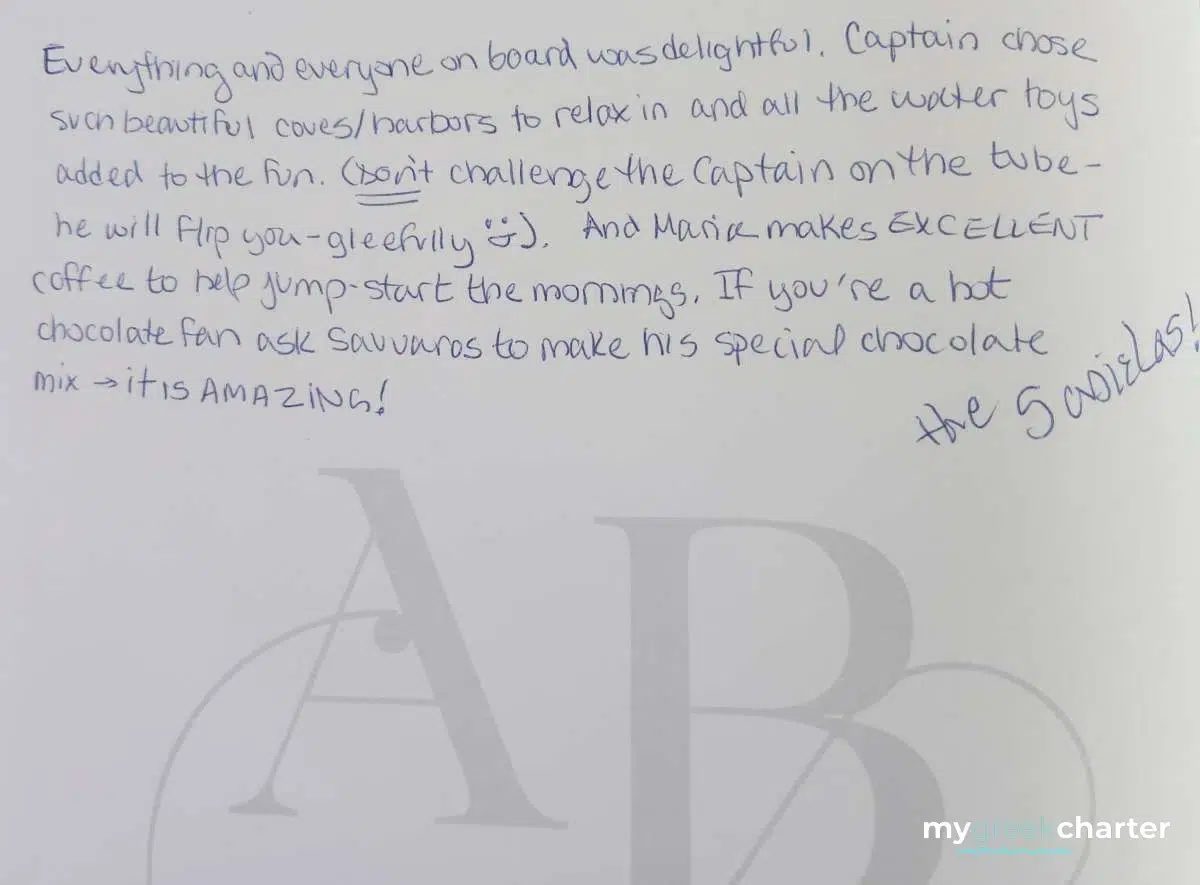 Everything and everyone on board was delightful. Captain chose
such beautiful coves/harbors to relax in and all the water toys
added to the fun. (Don't challenge the Captain on the tube-
he will flip you-gleefully). And Maria makes EXCELLENT
coffee to help jump-start the mornings. If you're a hot
chocolate fan ask Savvaros to make his special chocolate
mix → it is AMAZING!
the
A B
mygreekcharter